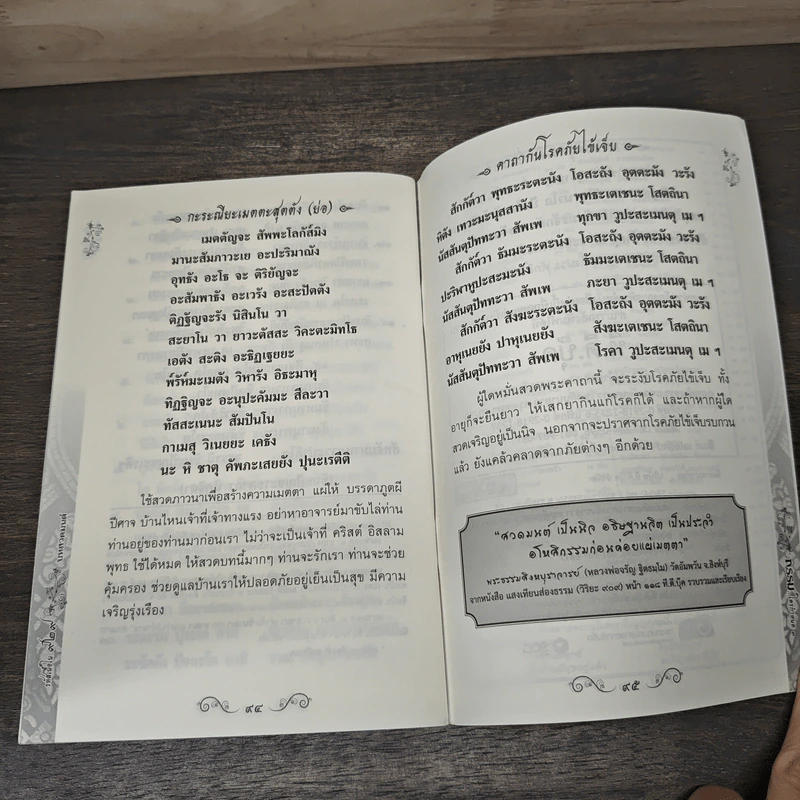 กะระณียะเมตตะสุตตัง (ย่อ)
เมตตัญจะ สัพพะโลกัส๎มิง
มานะสัมภาวะเย อะปะริมาณัง
อุทธัง อะโธ จะ ติริยัญจะ
อะสัมพาธัง อะเวรัง อะสะปัตตัง
ติฏฐัญจะรัง นิสินโน วา
สะยาโน วา ยาวะตัสสะ วิคะตะมิทโธ
เอตัง สะติง อะธิฏเฐยยะ
พ๎รัห๎มะเมตัง วิหารัง อิธะมาหุ
ทิฏฐิญจะ อะนุปะคัมมะ สีละวา
ทัสสะเนนะ สัมปันโน
กาเมสุ วิเนยยะ เคธัง
นะ หิ ชาตุ คัพภะเสยยัง ปุนะเรตีติ
ใช้สวดภาวนาเพื่อสร้างความเมตตา แผ่ให้ บรรดาภูตผี
ปีศาจ บ้านไหนเจ้าที่เจ้าทางแรง อย่าหาอาจารย์มาขับไล่ท่าน
ท่านอยู่ของท่านมาก่อนเรา ไม่ว่าจะเป็นเจ้าที่ คริสต์ อิสลาม
พุทธ ใช้ได้หมด ให้สวดบทนี้มากๆ ท่านจะรักเรา ท่านจะช่วย
คุ้มครอง ช่วยดูแลบ้านเราให้ปลอดภัยอยู่เย็นเป็นสุข มีความ
เจริญรุ่งเรือง
๙๔
บทสวดมนต์
คาถากันโรคภัยไข้เจ็บ
สักกัต๎วา พุทธะระตะนัง โอสะถัง อุตตะมัง วะรัง
หิตัง เทวะมะนุสสานัง พุทธะเตเชนะ โสตถินา
นัสสันตุปัททะวา สัพเพ ทุกขา วูปะสะเมนตุ เม ฯ
สักกัต๎วา ธัมมะระตะนัง โอสะถัง อุตตะมัง วะรัง
ปะริฬาหูปะสะมะนัง ธัมมะเตเชนะ โสตถินา
นัสสันตุปัททะวา สัพเพ ภะยา วูปะสะเมนตุ เม ฯ
สักกัต๎วา สังฆะระตะนัง โอสะถัง อุตตะมัง วะรัง
อาหุเนยยัง ปาหุเนยยัง สังฆะเตเชนะ โสตถินา
นัสสันตุปัททะวา สัพเพ โรคา วูปะสะเมนตุ เม ฯ
ผู้ใดหมั่นสวดพระคาถานี้ จะระงับโรคภัยไข้เจ็บ ทั้ง
อายุก็จะยืนยาว ให้เสกยากินแก้โรคก็ได้ และถ้าหากผู้ใด
สวดเจริญอยู่เป็นนิจ นอกจากจะปราศจากโรคภัยไข้เจ็บรบกวน
แล้ว ยังแคล้วคลาดจากภัยต่างๆ อีกด้วย
“สวดมนต์ เป็นนิจ อธิษฐานจิต เป็นประจำ
อโหสิกรรมก่อนค่อยแผ่เมตตา”
พระธรรมสิงหบุราจารย์ (หลวงพ่อจรัญ ฐิตธมฺโม) วัดอัมพวัน จ.สิงห์บุรี
จากหนังสือ แสงเทียนส่องธรรม (วิริยะ ๙๐๙) หน้า ๑๑๘ ที.ดี.บุ๊ค รวบรวมและเรียบเรียง
๙๕